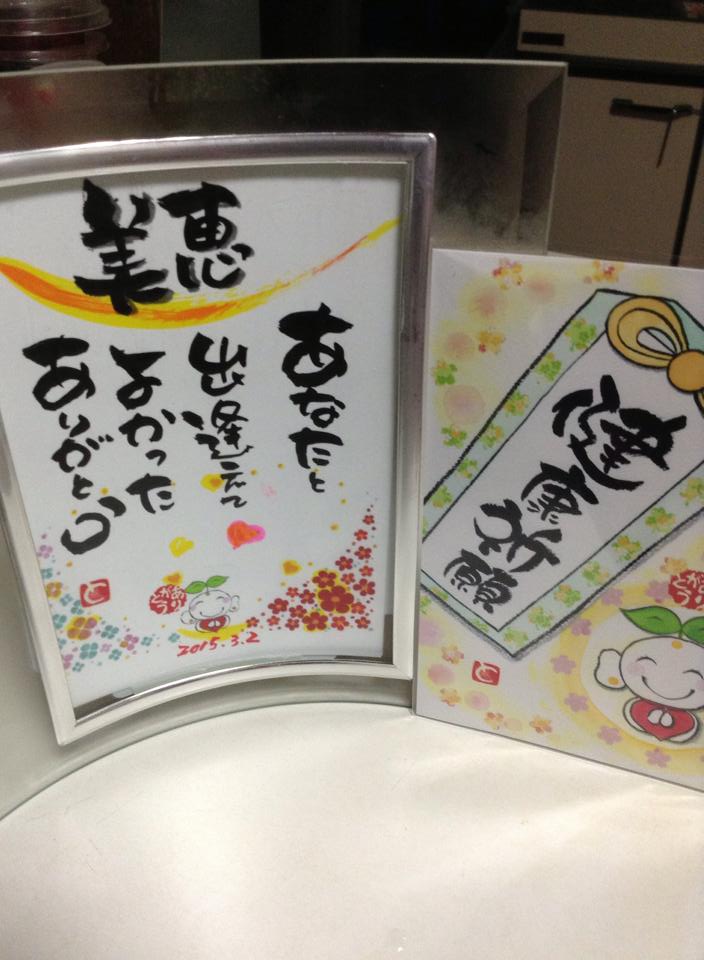 美恵
あなたと
出逢えて
よかった
ありがとう
と
ありがとう
2015.3.2
健康祈願
ありがとう
と